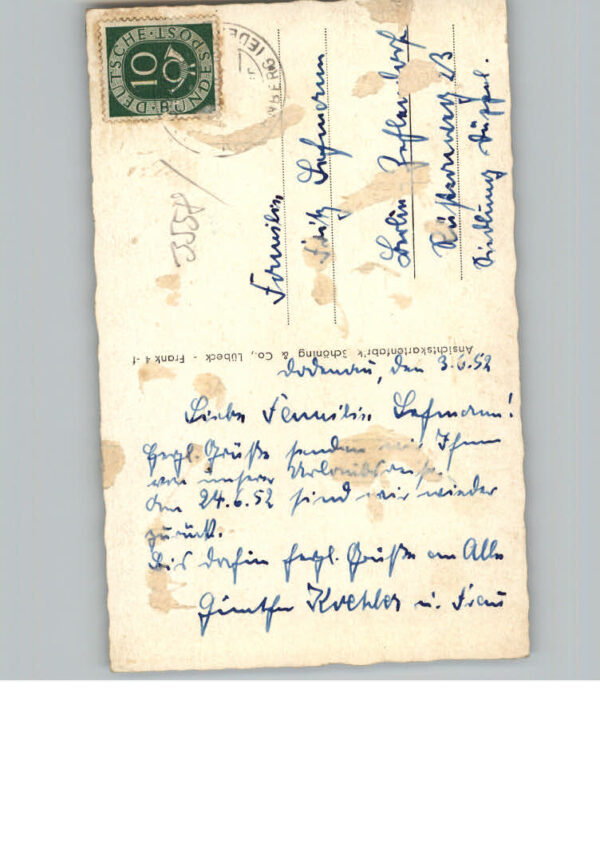 DEUTSCHE BUNDESPOST
10
3558
Familie
Fritz Lehmann
Berlin-Zehlendorf
Siedlung Düppel.
Ansichtskartenfabrik Schöning & Co., Lübeck - Frank 4 -f
Dodenau, den 3.6.52
Liebe Familie Lehmann!
Herzl. Grüße senden wir Ihnen
von unserer Urlaubsreise.
Am 24.6.52 sind wir wieder
zurück.
Bis dahin herzl. Grüße an Alle
Günther Koehler u. Frau